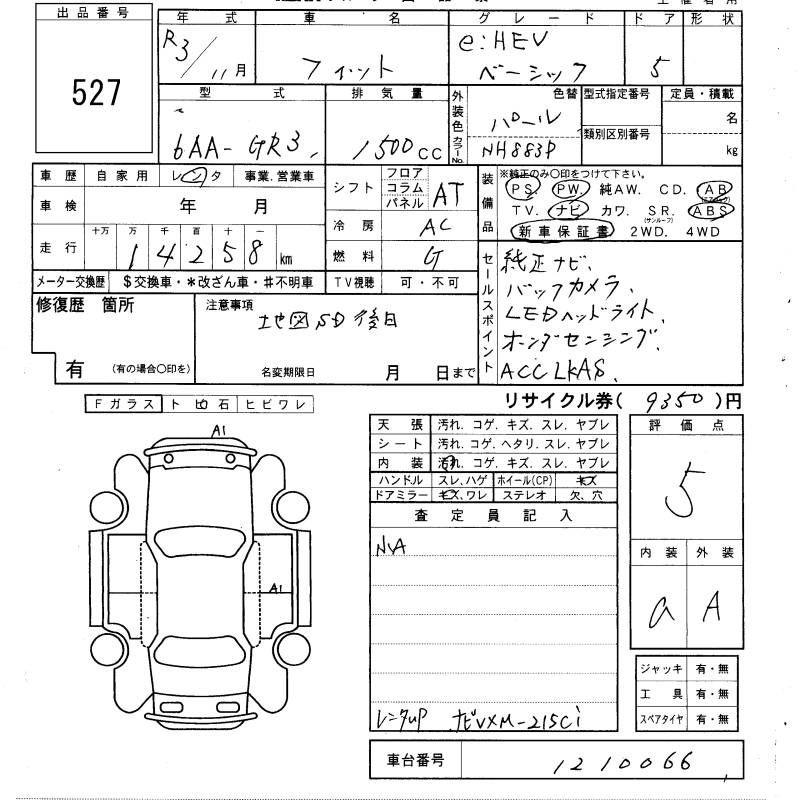 出品番号
527
年式 車名 グレード ドア 形状
R3/11月 フィット e:HEV ベーシック 5
型式 排気量 外装色 色替 型式指定番号 定員・積載
6AA-GR3 1500cc パール 名
カラーNo. NH883P 類別区別番号 kg
車歴 自家用 レンタ 事業.営業車
車検 年 月
走行 十万 万 千 百 十 一
14258 km
メーター交換歴 $交換車・*改ざん車・#不明車
シフト フロア コラム パネル AT
冷房 AC
燃料 G
TV視聴 可・不可
装備品 ※純正のみ〇印をつけて下さい。
PS. PW. 純AW. CD. AB
TV. ナビ カワ. SR. ABS
(サンルーフ)
新車保証書 2WD. 4WD
修復歴 箇所
有 (有の場合〇印を)
注意事項
地図SD後日
名変期限日 月 日まで
セールスポイント
純正ナビ.
バックカメラ.
LEDヘッドライト.
ホンダセンシング.
ACC LKAS.
リサイクル券( 9350 )円
Fガラス トビ石 ヒビワレ
A1
A1
天張 汚れ. コゲ. キズ. スレ. ヤブレ
シート 汚れ. コゲ. ヘタリ. スレ. ヤブレ
内装 汚れ. コゲ. キズ. スレ. ヤブレ
ハンドル スレ、ハゲ ホイール(CP) キズ
ドアミラー キズ、ワレ ステレオ 欠、穴
査定員記入
NA
レンタup ナビVXM-215Ci
評価点
5
内装 外装
a A
ジャッキ 有・無
工具 有・無
スペアタイヤ 有・無
車台番号 1210066